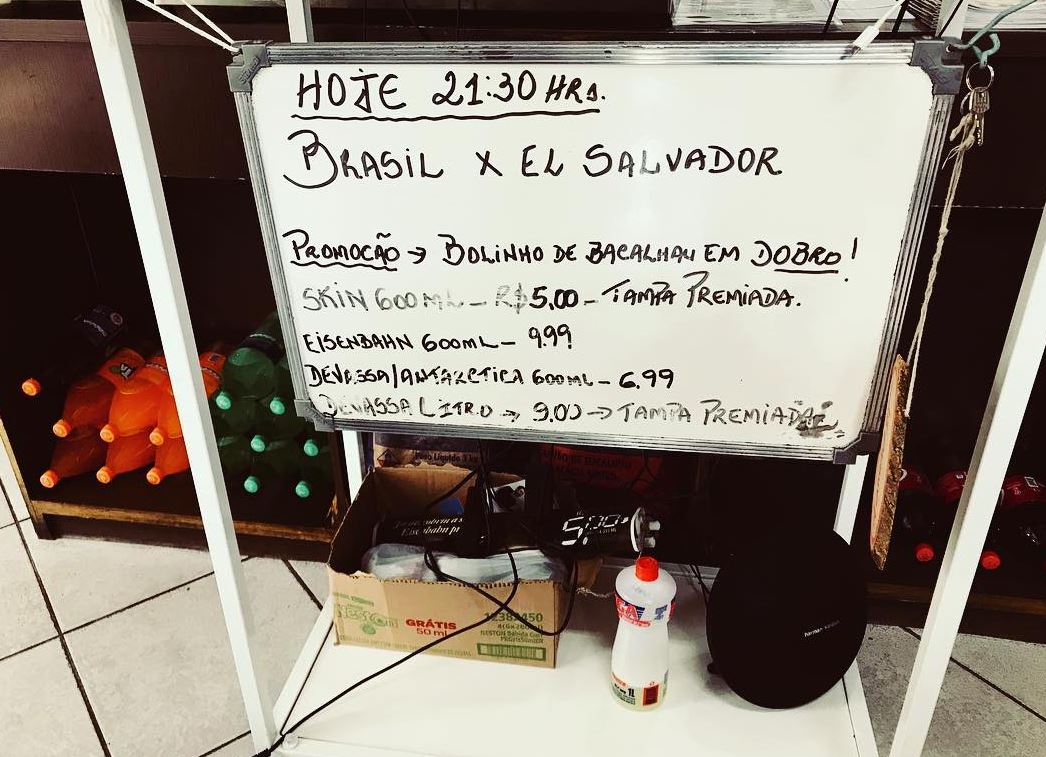 HOJE 21:30 HRS.
BRASIL X EL SALVADOR
PROMOCÃO → BOLINHO DE BACALHAU EM DOBRO!
SKIN 600ML - R$5,00 - TAMPA PREMIADA.
EISENBAHN 600ML - 9.99
DEVASSA/ANTARCTICA 600ML - 6.99
DEVASSA LITRO → 9.00 → TAMPA PREMIADA
5,00
Eisenbahn
NESTON
GRÁTIS
50 ml
12382450
harman kardon